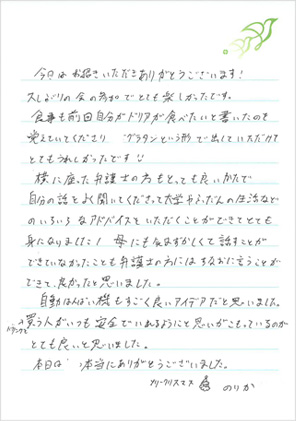 今日はお招きいただきありがとうございます！
久しぶりの会の参加でとても楽しかったです。
食事も前回自分がドリアが食べたいと書いたのも
覚えていてくださり グラタンという形で出していただけて
とてもうれしかったです!!
横に座った弁護士の方もとっても良いかたで
自分の話をよく聞いてくださって大学やふだんの生活など
のいろいろなアドバイスをいただくことができてとても
身になりました！ 母にもなはずかしくて話すことが
できていなかったことも弁護士の方にはすなおに言うことが
できて、良かったと思いました。
自動はんばい機もすごく良いアイデアだと思いました。
トランクス
買う人がいつも安全でいれるようにと思いがこもっているのが
とても良いと思いました。
本日は 本当にありがとうございました。
メリークリスマス のりか